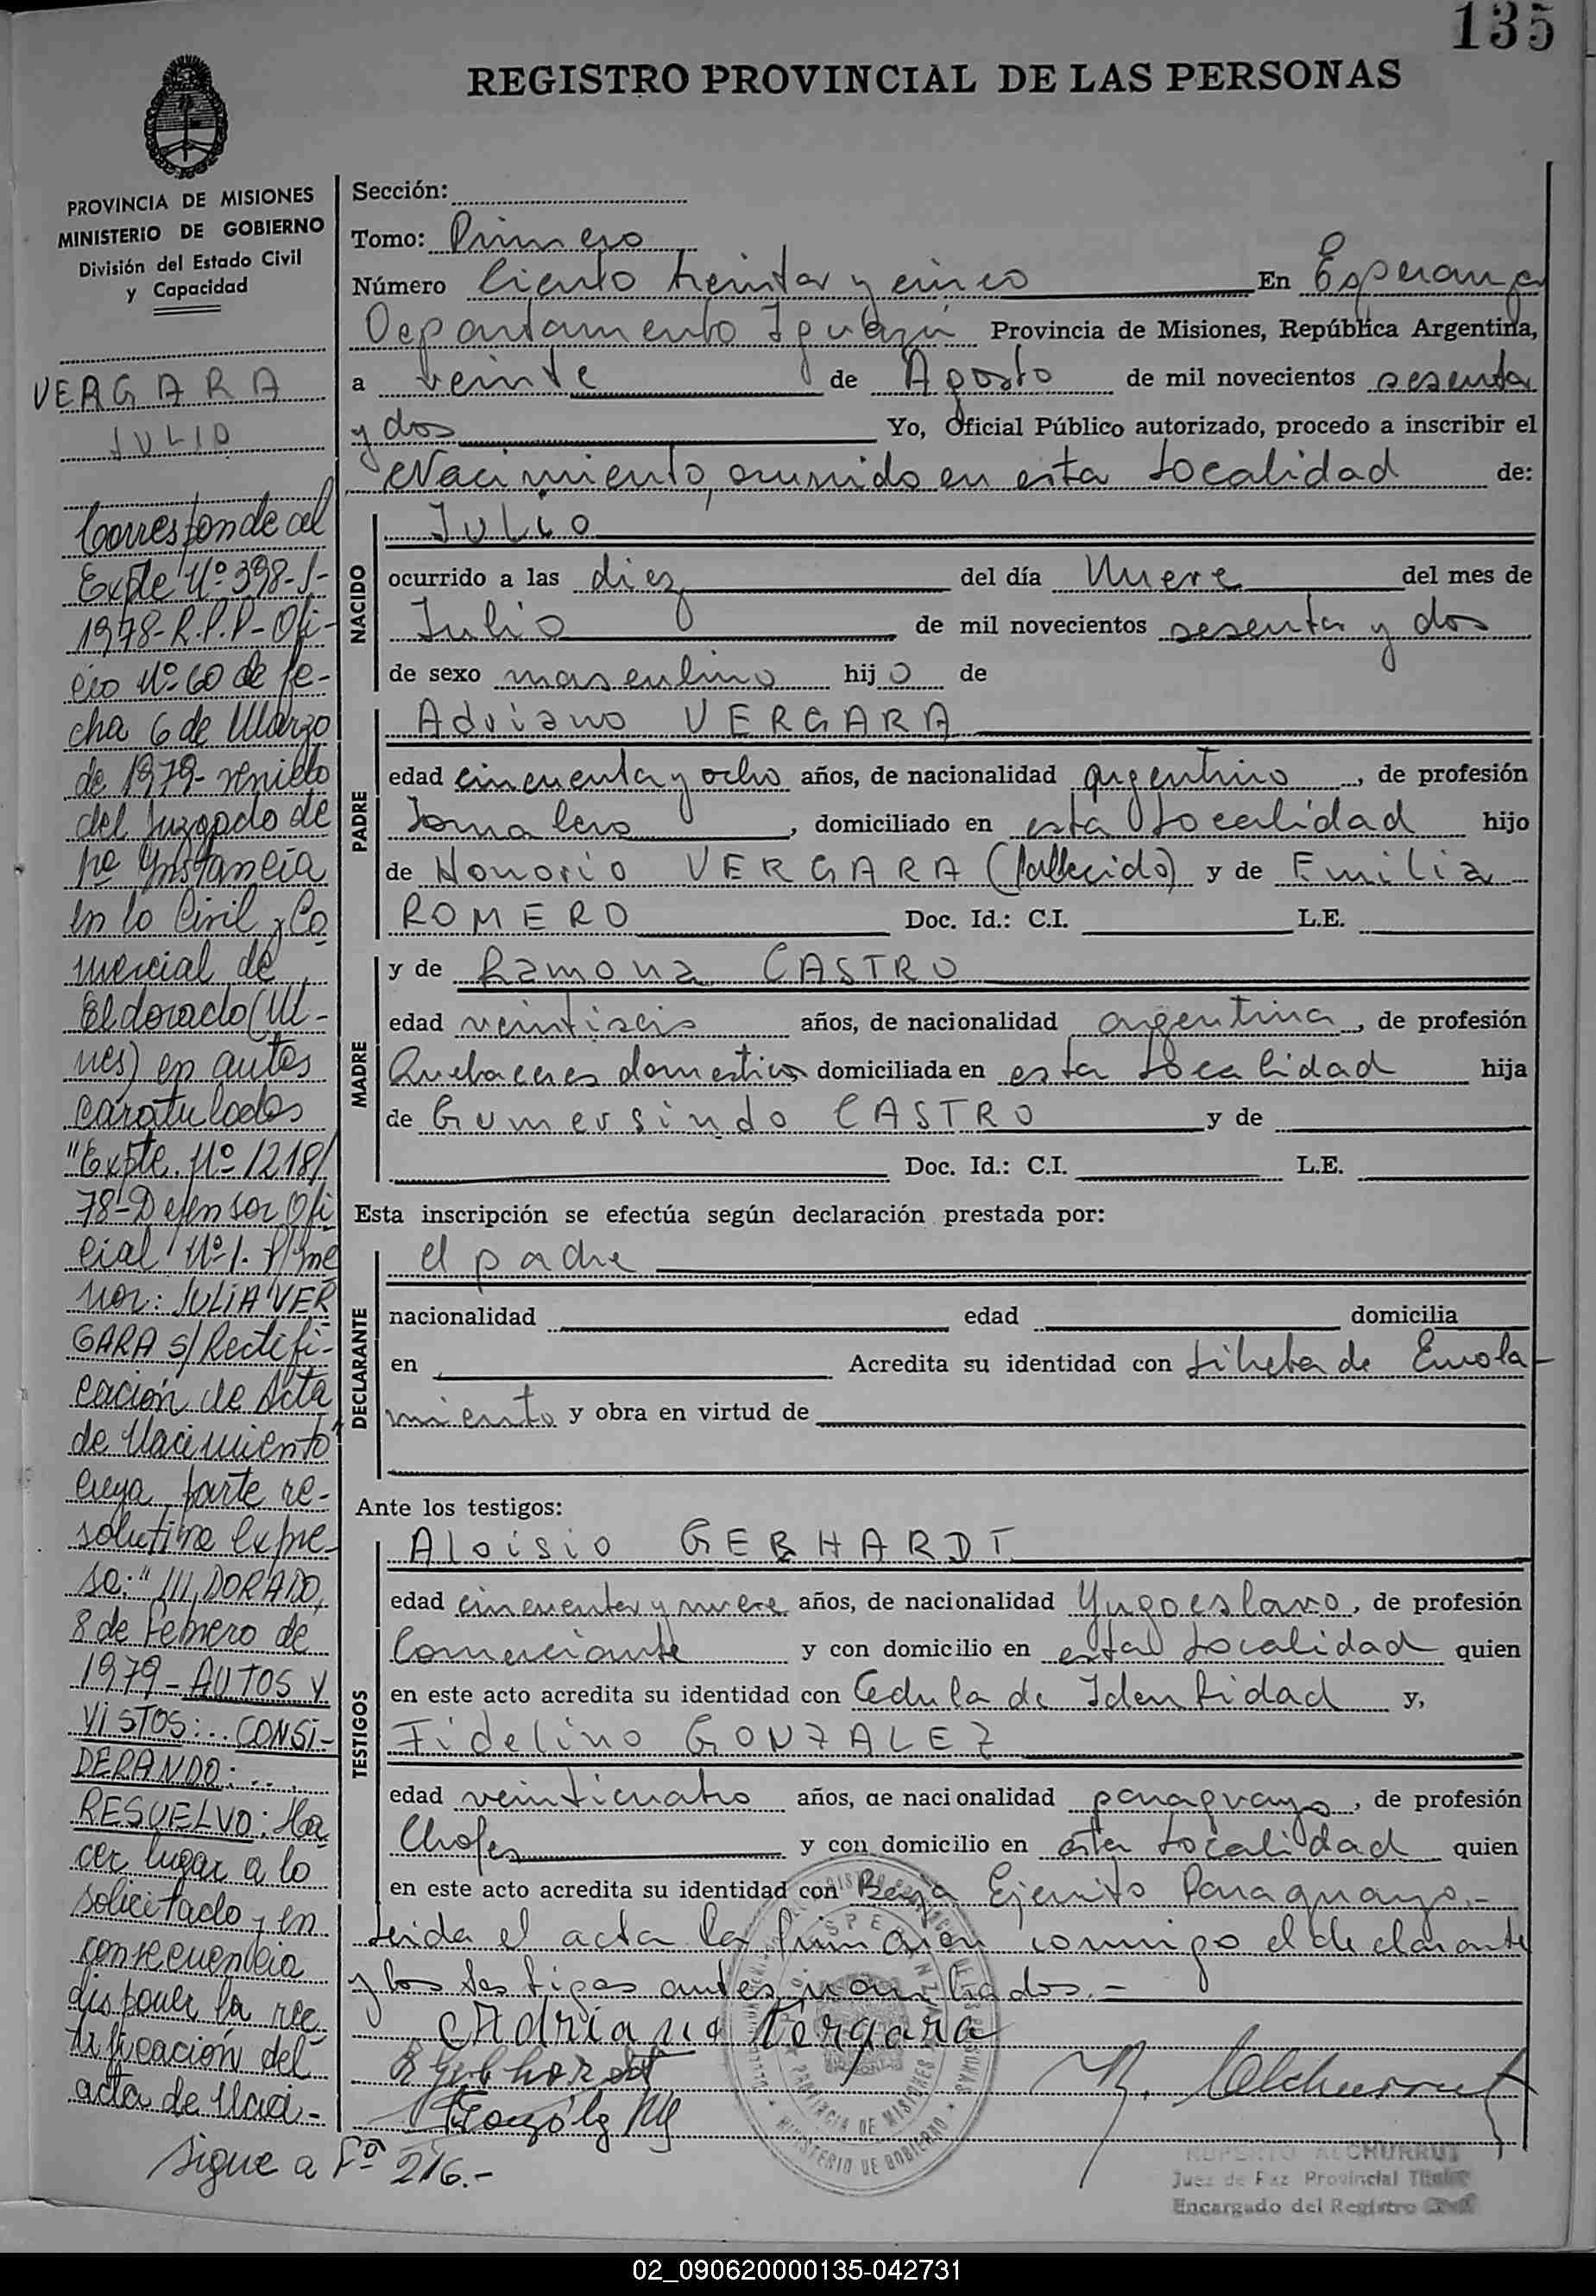 135
REGISTRO PROVINCIAL DE LAS PERSONAS
PROVINCIA DE MISIONES
MINISTERIO DE GOBIERNO
División del Estado Civil
y Capacidad
VERGARA
JULIO
Corresponde al
Expte Nº 398-J-
1978-R.P.P-Ofi-
cio Nº 60 de fe-
cha 6 de Marzo
de 1979- venido
del Juzgado de
1ra Instancia
en lo Civil y Co
mercial de
Eldorado (Mi-
nes) en autos
caratulados
"Expte. Nº 1218/
78-Defensor Ofi
cial Nº 1. P/me
nor: JULIA VER
GARA s/ Rectifi-
cación de Acta
de Nacimiento"
cuya parte re-
solutiva expre-
sa: " DORADO,
8 de Febrero de
1979-AUTOS Y
VISTOS:.. CONSI-
DERANDO:...
RESUELVO: Ha
cer lugar a lo
solicitado y en
consecuencia
disponer la rec
tificación del
acta de Naci-
Sigue a Fº 216.-
Sección:
Tomo: Primero
Número Ciento treinta y cinco En Esperanza
Departamento Iguazú Provincia de Misiones, República Argentina,
a veinte de Agosto de mil novecientos sesenta
y dos Yo, Oficial Público autorizado, procedo a inscribir el
Nacimiento, ocurrido en esta Localidad de:
NACIDO
Julio
ocurrido a las diez del día Nueve del mes de
Julio de mil novecientos sesenta y dos
de sexo masculino hijo de
PADRE
Adriano VERGARA
edad cincuenta y ocho años, de nacionalidad argentino, de profesión
Jornalero, domiciliado en esta Localidad hijo
de Honorio VERGARA (fallecido) y de Emilia
ROMERO Doc. Id.: C.I. L.E.
MADRE
y de Ramona CASTRO
edad veintiseis años, de nacionalidad argentina, de profesión
Quehaceres domesticos domiciliada en esta Localidad hija
de Gumersindo CASTRO y de
Doc. Id.: C.I. L.E.
Esta inscripción se efectúa según declaración prestada por:
DECLARANTE
el padre
nacionalidad edad domicilia
en Acredita su identidad con Libreta de Enrola-
miento y obra en virtud de
Ante los testigos:
TESTIGOS
Aloisio GEBHARDT
edad cincuenta y nueve años, de nacionalidad Yugoeslavo, de profesión
Comerciante y con domicilio en esta Localidad quien
en este acto acredita su identidad con Cedula de Identidad y,
Fidelino GONZALEZ
edad veinticuatro años, de nacionalidad paraguayo, de profesión
Chofer y con domicilio en esta Localidad quien
en este acto acredita su identidad con Baja Ejercito Paraguayo.-
Leida el acta la firmaron conmigo el declarante
y los testigos antes nombrados.-
Adriano Vergara
PROVINCIA DE MISIONES
MINISTERIO DE GOBIERNO
RUPERTO ALCHURRUT
Juez de Paz Provincial Titular
Encargado del Registro Civil
02_090620000135-042731